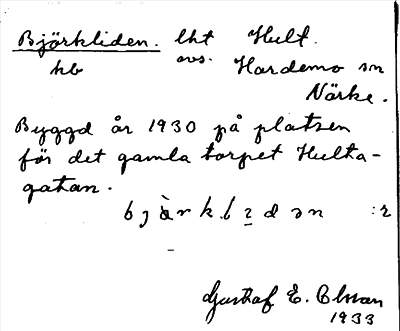 Björkliden. lht Hult.
hb avs. Hardemo sn
Närke.
Byggd år 1930 på platsen
för det gamla torpet Hulta-
gatan.
:2
Gustaf E. Olsson
1933